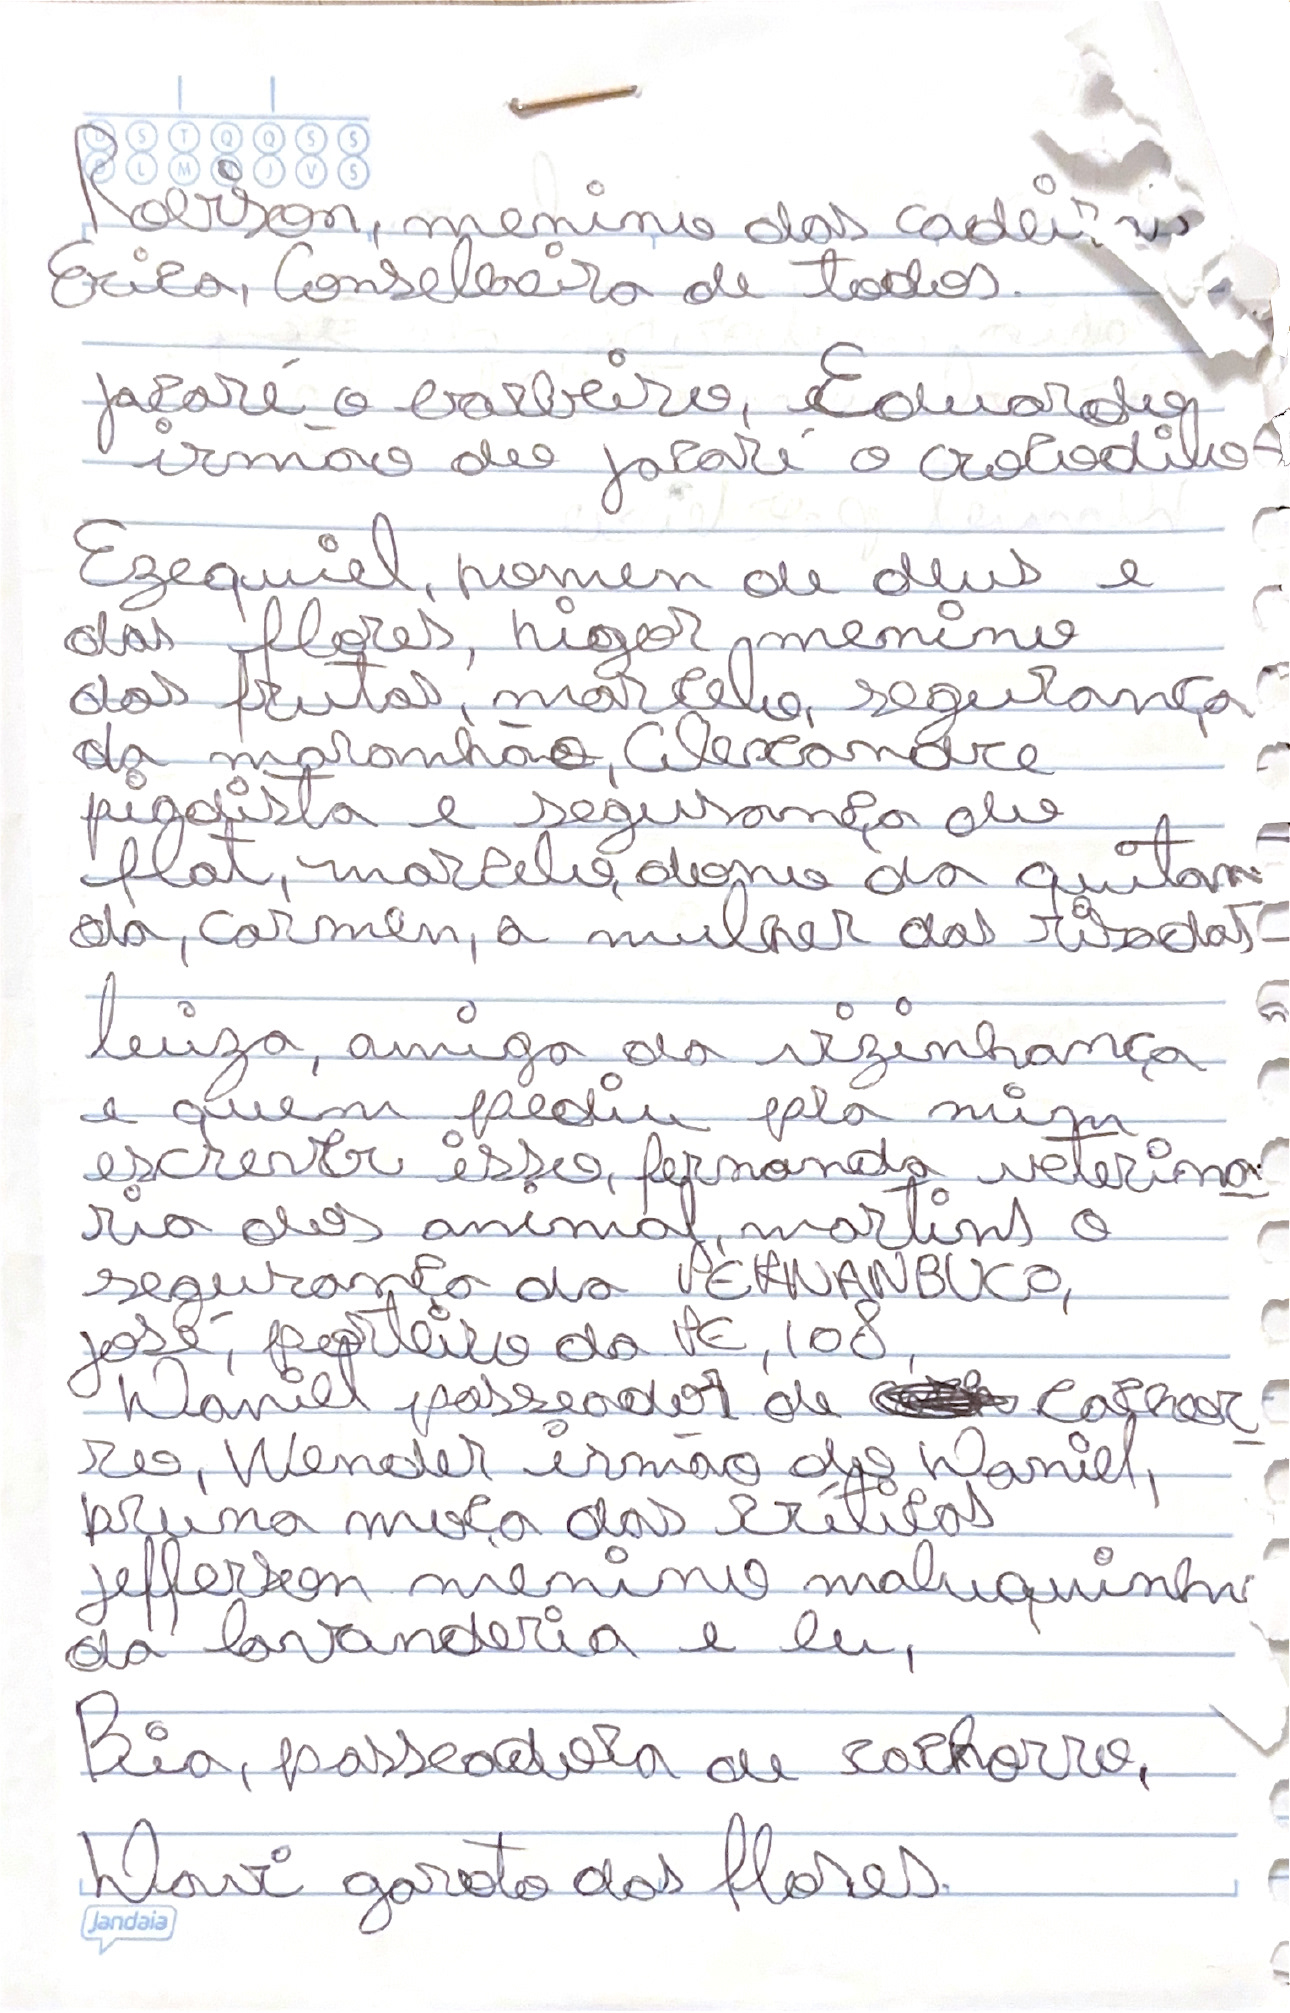 D S T Q Q S S
D L M M J V S
Roerison, menino das cadeiras
Erica, Conselheira de todos.
jacaré o barbeiro, Eduardo
irmão do jacaré o crocodilo
Ezequiel, homen de deus e
das flores, higor menino
das frutas, marcelo, segurança
da maranhão, Alexandre
pigaista e segurança do
flat, marcelo, dono da quitan
da, carmen, a mulher das risadas
leuza, amiga da vizinhança
e quem pediu pra mim
escrever isso, fernanda veterina
ria dos animal, martins o
segurança da PERNANBUCO,
josé, porteiro da PE, 108,
Daniel passeador de cachor
ro, Wender irmão do Daniel,
bruna moça das críticas
jefferson menino maluquinho
da lavanderia e eu,
Bia, passeadora de cachorro,
Davi garoto das flores.
jandaia